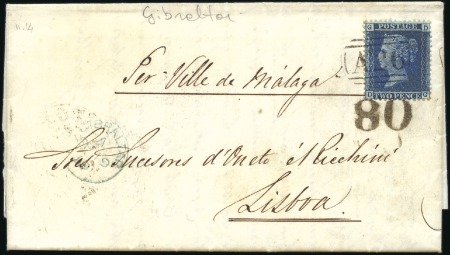 Gibraltar
POSTAGE
TWO PENCE
A26
Per Ville de Málaga
80
Sres Sucesores d'Oneto é Ricchini
Lisboa.